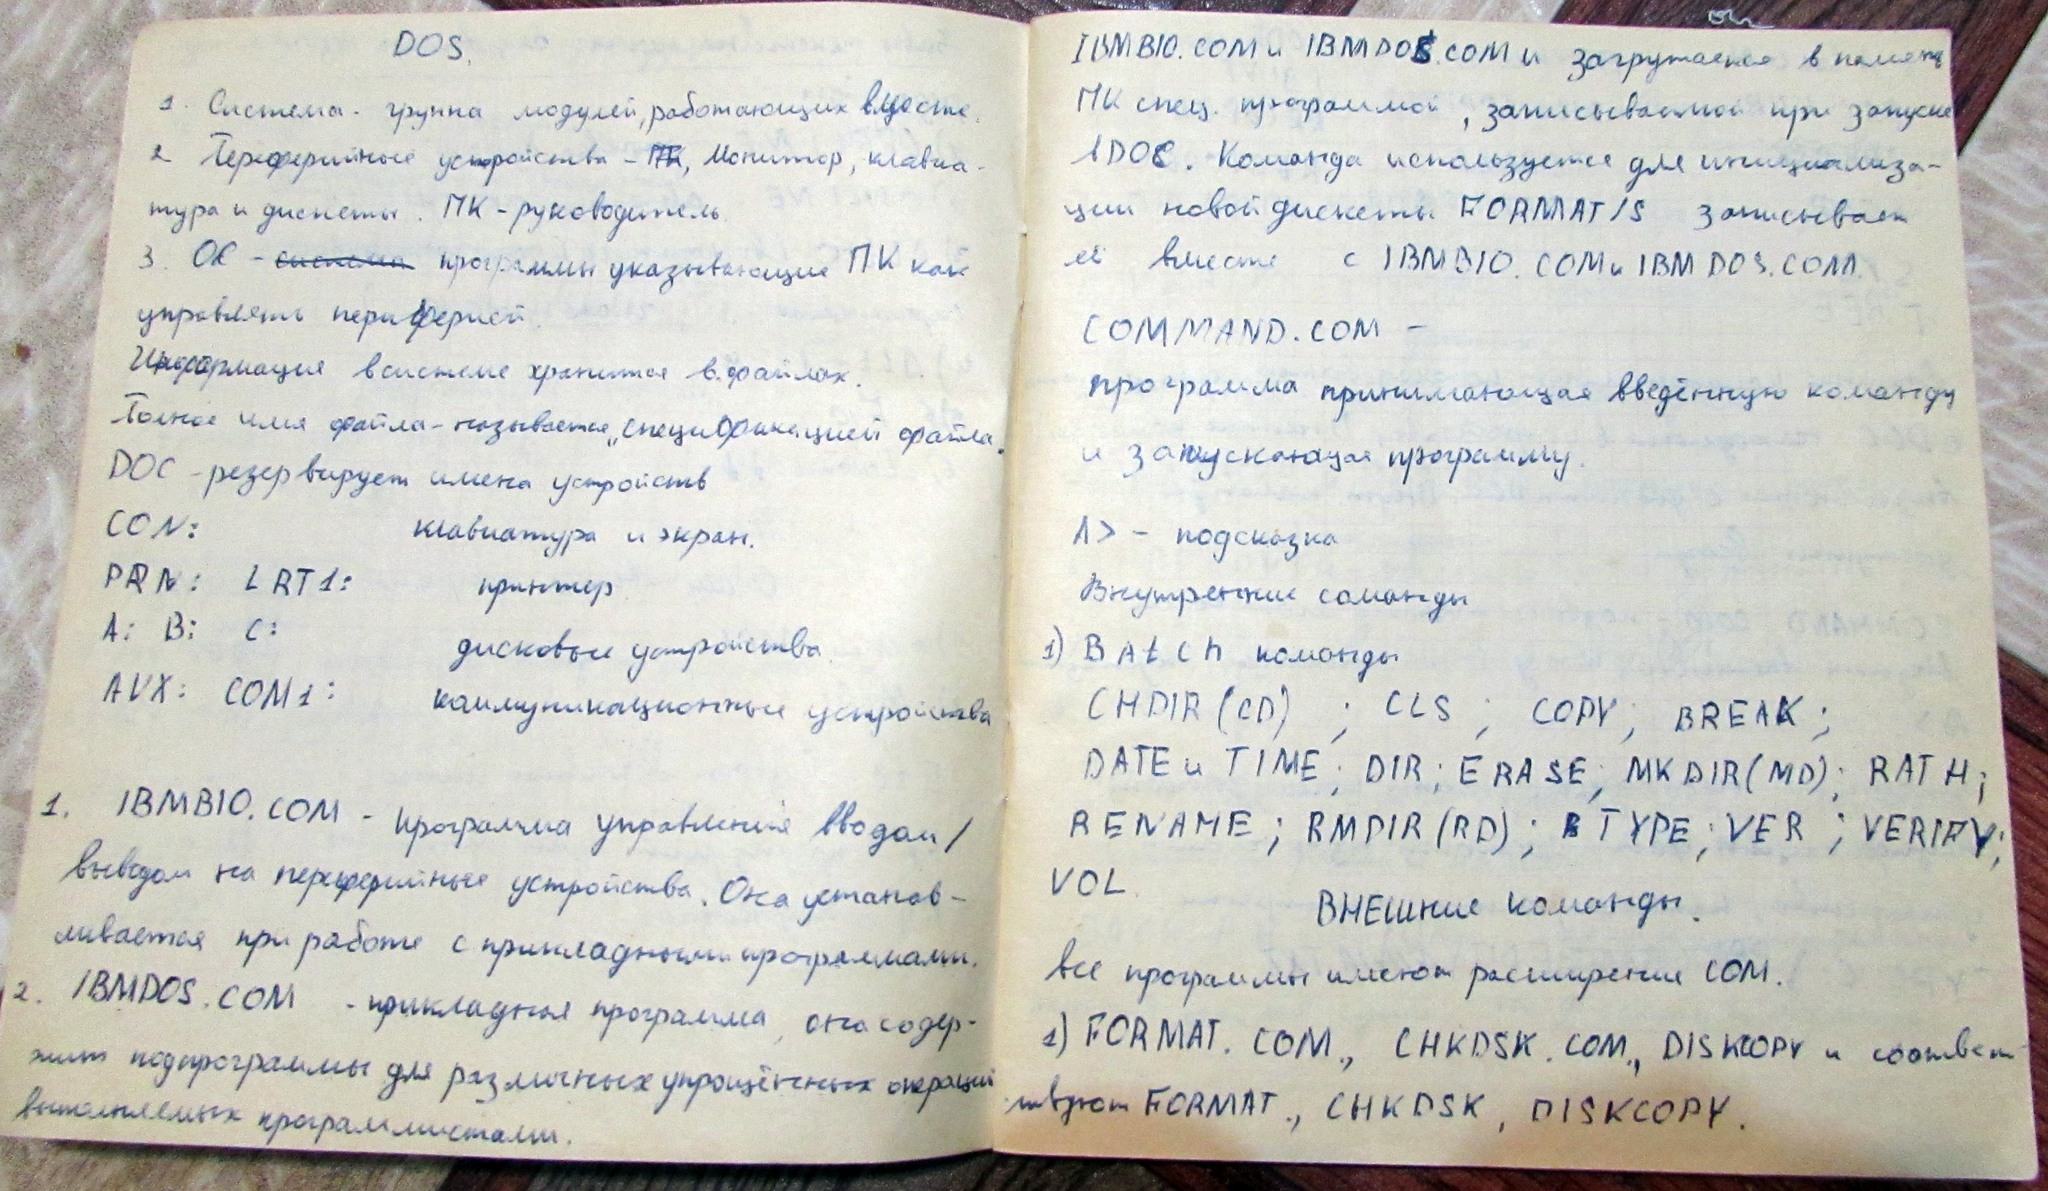 DOS.
1. Система - группа модулей, работающих вместе.
2 Переферийные устройства - ПК, Монитор, клавиа-
тура и дискеты. ПК - руководитель.
3. ОС - система программы указывающие ПК как
управлять периферией.
Информация в системе хранится в файлах.
Полное имя файла - называется „спецификацией файла.
DOC - резервирует имена устройств
CON: клавиатура и экран.
PRN: LRT1: принтер
A: B: C: дисковые устройства.
AVX: COM1: коммуникационные устройства
1. IBMBIO.COM - программа управления вводом/
выводом на переферийные устройства. Она устанав-
ливается при работе с прикладными программами.
2. IBMDOS.COM - прикладная программа, она содер-
жит подпрограммы для различных упрощённых операций
выполняемых программистами.
IBMBIO.COM и IBMDOS.COM и загружается в память
ПК спец. программой, записываемой при запуске
ДОС. Команда используется для инициализа-
ции новой дискеты FORMAT/S записывает
её вместе с IBMBIO.COM и IBMDOS.COM.
COMMAND.COM -
программа принимающая введённую команду
и запускающая программу.
A> - подсказка
Внутренние команды
1) BAtch команды
CHDIR (CD) ; CLS ; COPY ; BREAK ;
DATE и TIME ; DIR ; ERASE ; MKDIR (MD) ; RATH ;
RENAME ; RMDIR (RD) ; TYPE ; VER ; VERIFY ;
VOL.
ВНЕШние команды.
все программы имеют расширение COM.
1) FORMAT.COM., CHKDSK.COM., DISKCOPY и соответ-
ствуют FORMAT., CHKDSK, DISKCOPY.